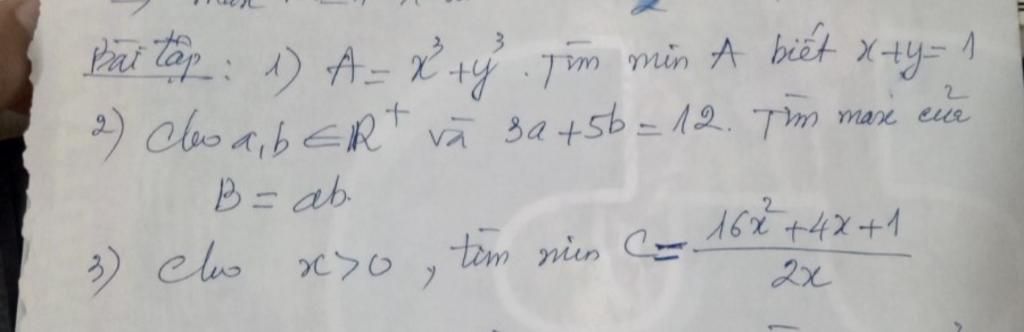 Bài tập: 1) A = x³ + y³. Tìm min A biết x+y=1
2) Cho a,b ∈ R⁺ và 3a+5b=12. Tìm max của
B = ab.
3) Cho x>0, tìm min C = (16x²+4x+1)/(2x)